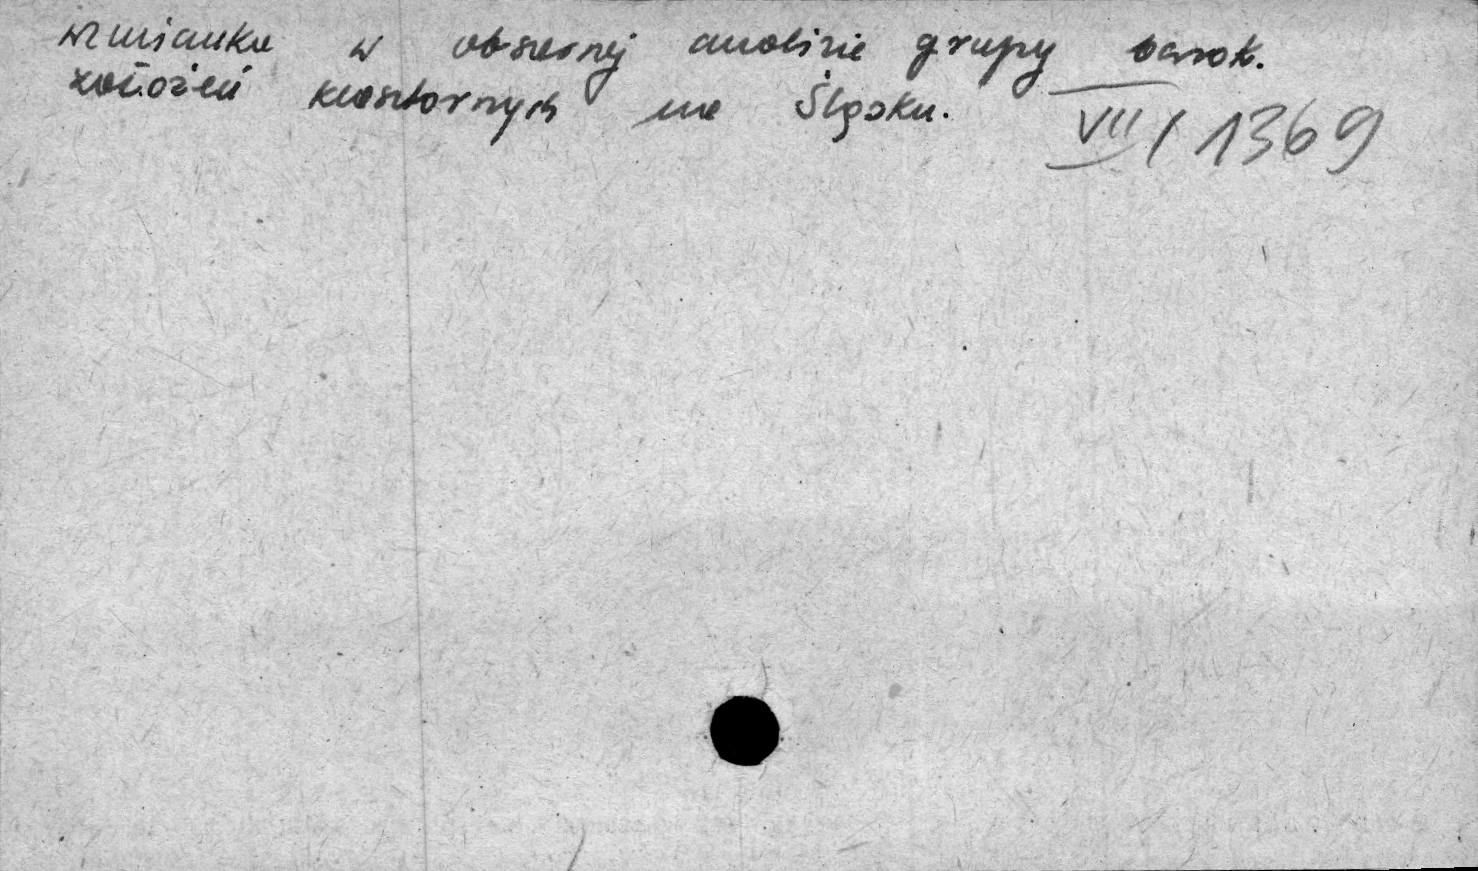 wzmianka w obszernej analizie grupy barok.
założeń klasztornych na Śląsku.
VII / 1369